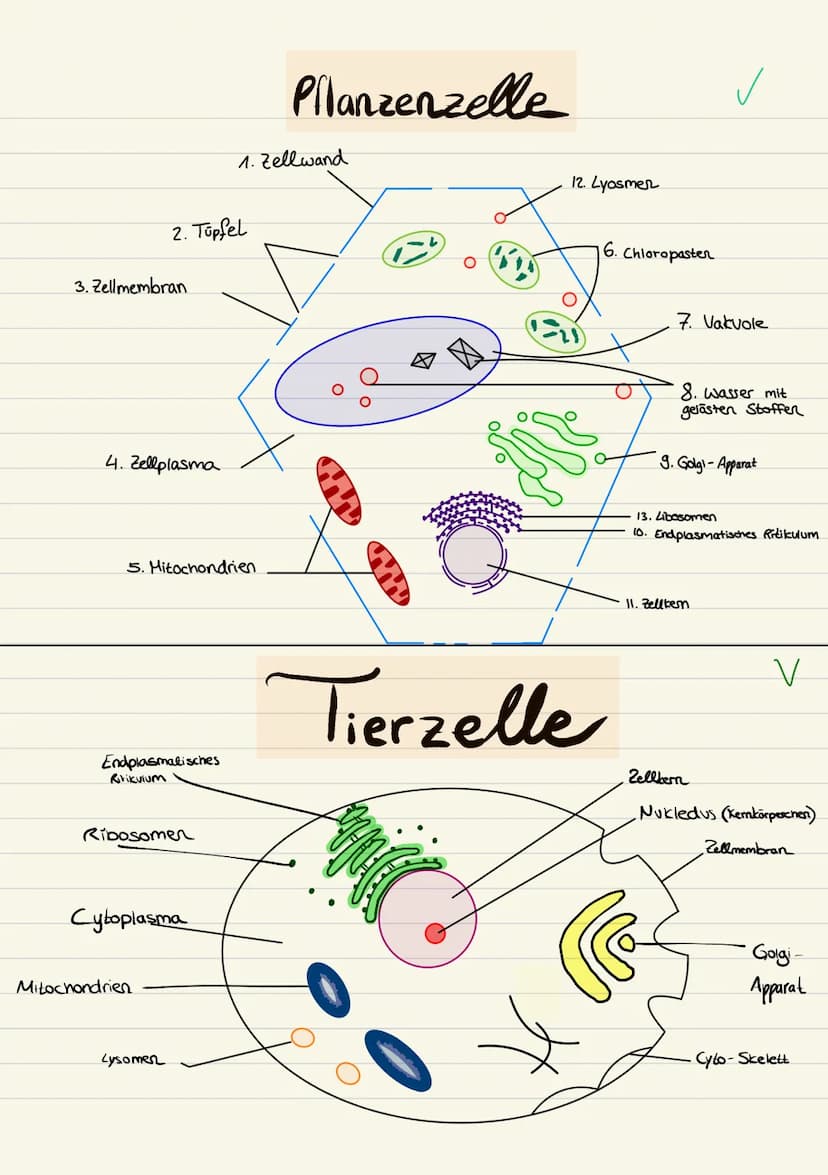 Pflanzenzelle
1. Zellwand
12. Lyosmen
2. Tüpfel
6. Chloropasten
3. Zellmembran
7. Vakuole
8. Wasser mit
gelösten Stoffen
4. Zellplasma
9. Golgi-Apparat
13. Libosomen
10. Endplasmatisches Ritikulum
5. Mitochondrien
11. Zellkern
Tierzelle
Endplasmatisches
Ritikulum
Zellkern
Ribosomen
Nukledus (Kernkörperchen)
Zellmembran
Cytoplasma
Golgi-
Apparat
Mitochondrien
Lysomen
Cyto-Skelett